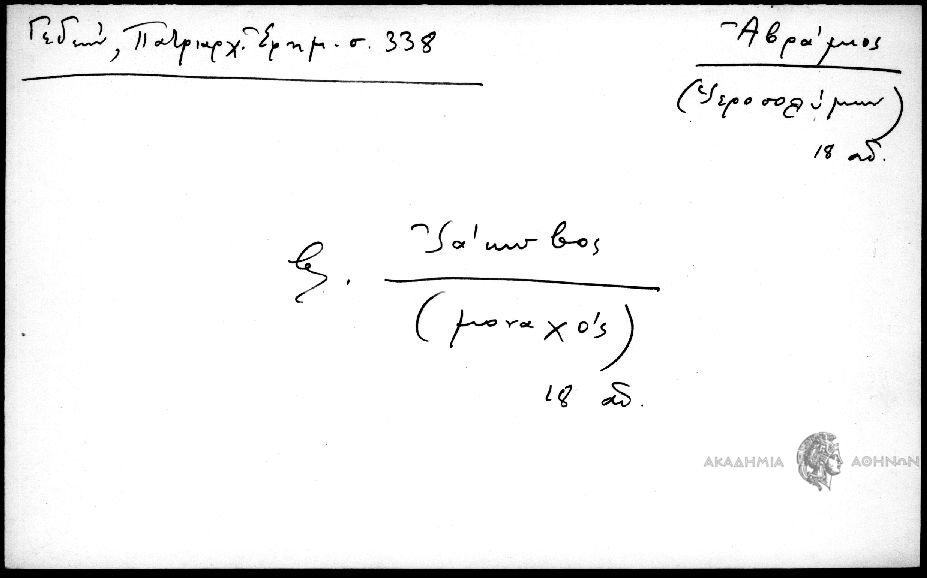 Γεδεών, Πατριαρχ. Ἐφημ. σ. 338
Ἀβράμιος
(Ἱεροσολύμων)
18 αἰ.
βλ. Ἰάκωβος
(μοναχός)
18 αἰ.
ΑΚΑΔΗΜΙΑ ΑΘΗΝΩΝ